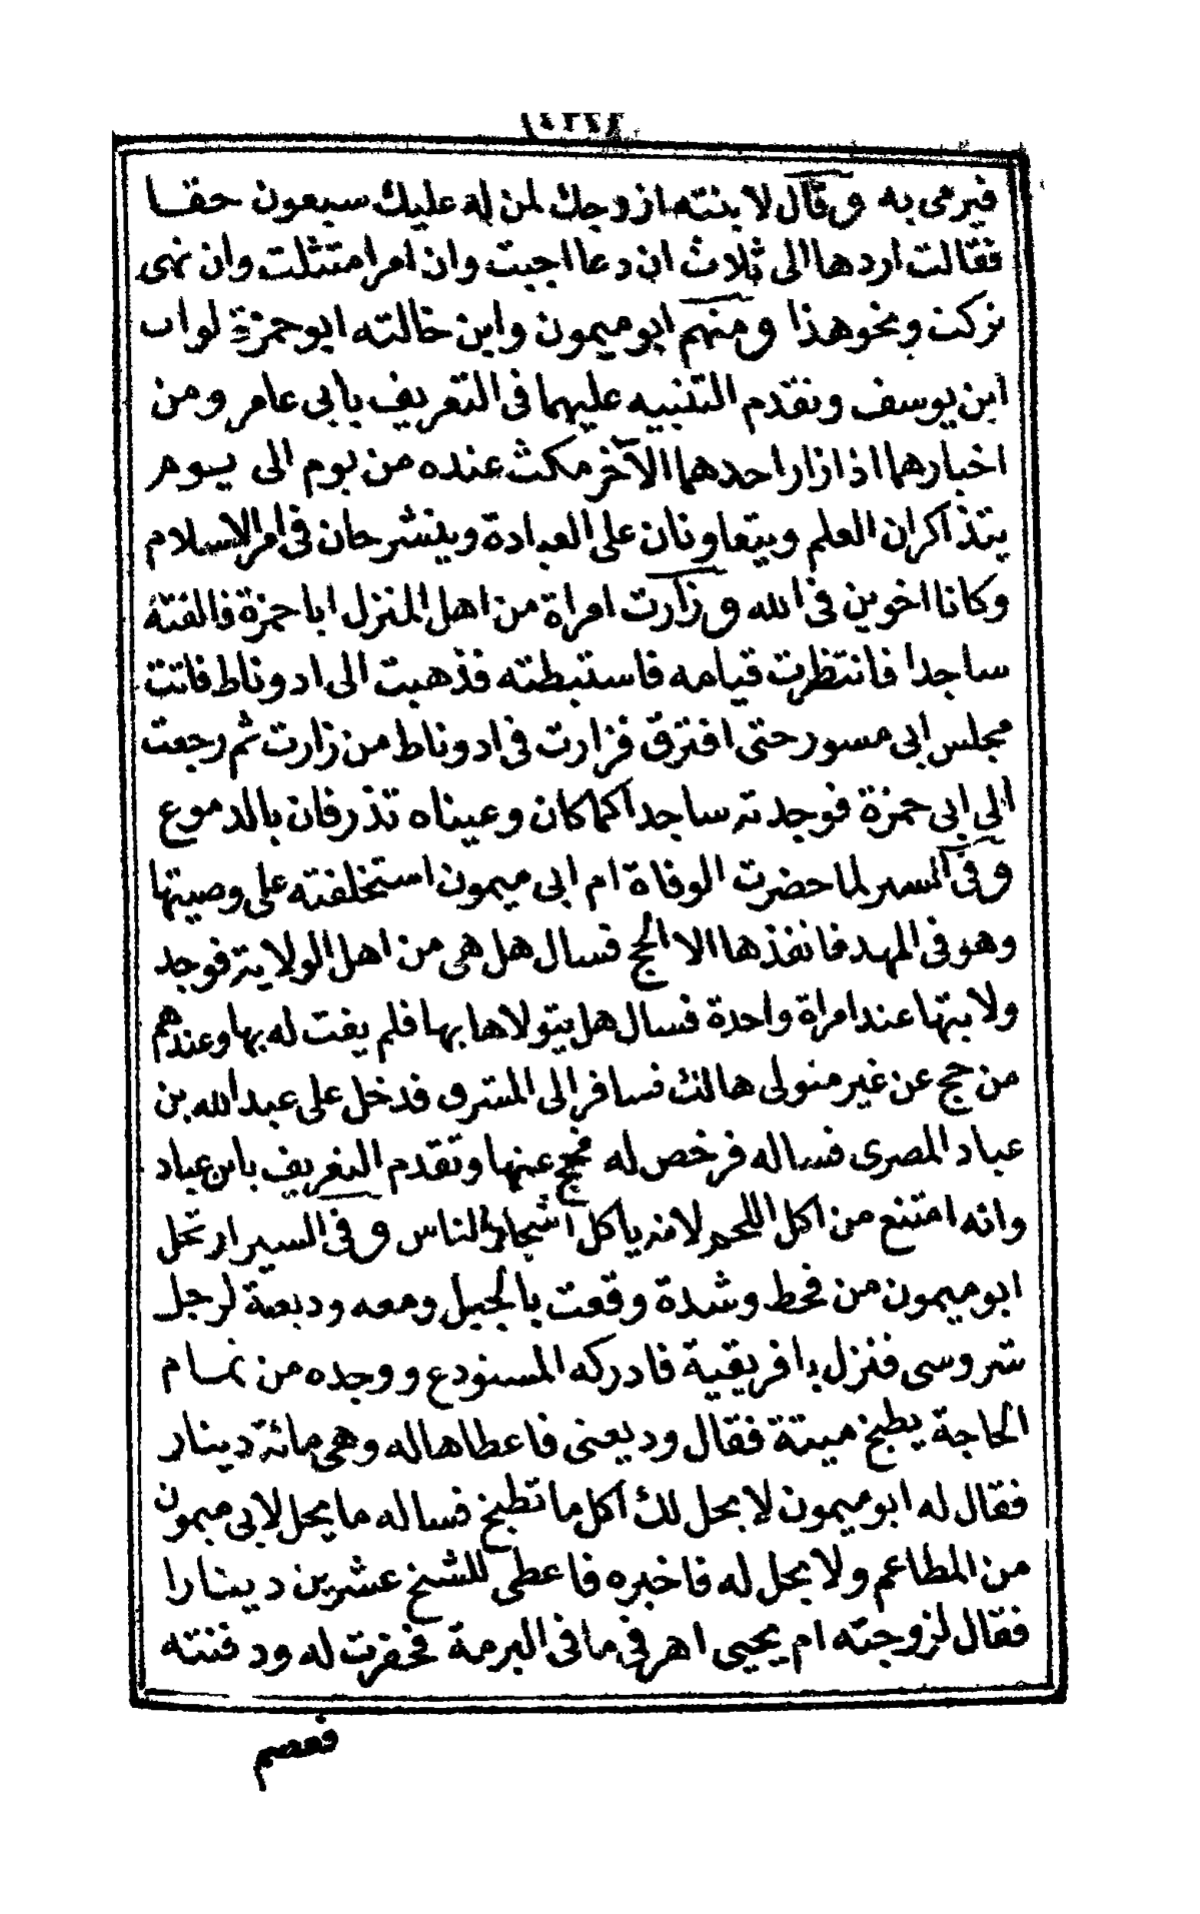 فيرمى به وقال لابنته ازوجك لمن له عليك سبعون حقا
فقالت اردها الى ثلاث ان دعا اجبت وان امر امتثلت وان نهى
تركت ونحو هذا ومنهم ابو ميمون وابن خالته ابو حمزة لواب
ابن يوسف وتقدم التنبيه عليهما فى التعريف بابى عامر ومن
اخبارهما اذا زار احدهما الآخر مكث عنده من يوم الى يوم
يتذاكران العلم ويتعاونان على العبادة وينشرحان فى امر الاسلام
وكانا اخوين فى الله وزارت امراة من اهل المنزل ابا حمزة فالفته
ساجدا فانتظرت قيامه فاستبطته فذهبت الى ادوناط فاتت
مجلس ابى مسور حتى افترق فزارت فى ادوناط من زارت ثم رجعت
الى ابى حمزة فوجدته ساجدا كما كان وعيناه تذرفان بالدموع
وفى السير لما حضرت الوفاة ام ابى ميمون استخلفته على وصيتها
وهو فى المهد فانفذها الا الحج فسال هل هى من اهل الولاية فوجد
ولايتها عند امراة واحدة فسال هل يتولاها بها فلم يفت له بها وعندهم
من حج عن غير متولى هالك فسافر الى المشرق فدخل على عبد الله بن
عباد المصرى فساله فرخص له فحج عنها وتقدم التعريف بابن عباد
وانه امتنع من اكل اللحم لانه ياكل اشجار الناس وفى السير ارتحل
ابو ميمون من قحط وشدة وقعت بالجبل ومعه وديعة لرجل
شروسى فنزل بافريقية فادركه المستودع ووجده من تمام
الحاجة يطبخ ميتة فقال وديعتى فاعطاها له وهى مائة دينار
فقال له ابو ميمون لا يحل لك اكل ما تطبخ فساله ما يحل لابى ميمون
من المطاعم ولا يحل له فاخبره فاعطى للشيخ عشرين دينارا
فقال لزوجته ام يحيى اهرقى ما فى البرمة فحفرت له ودفنته
فعصم